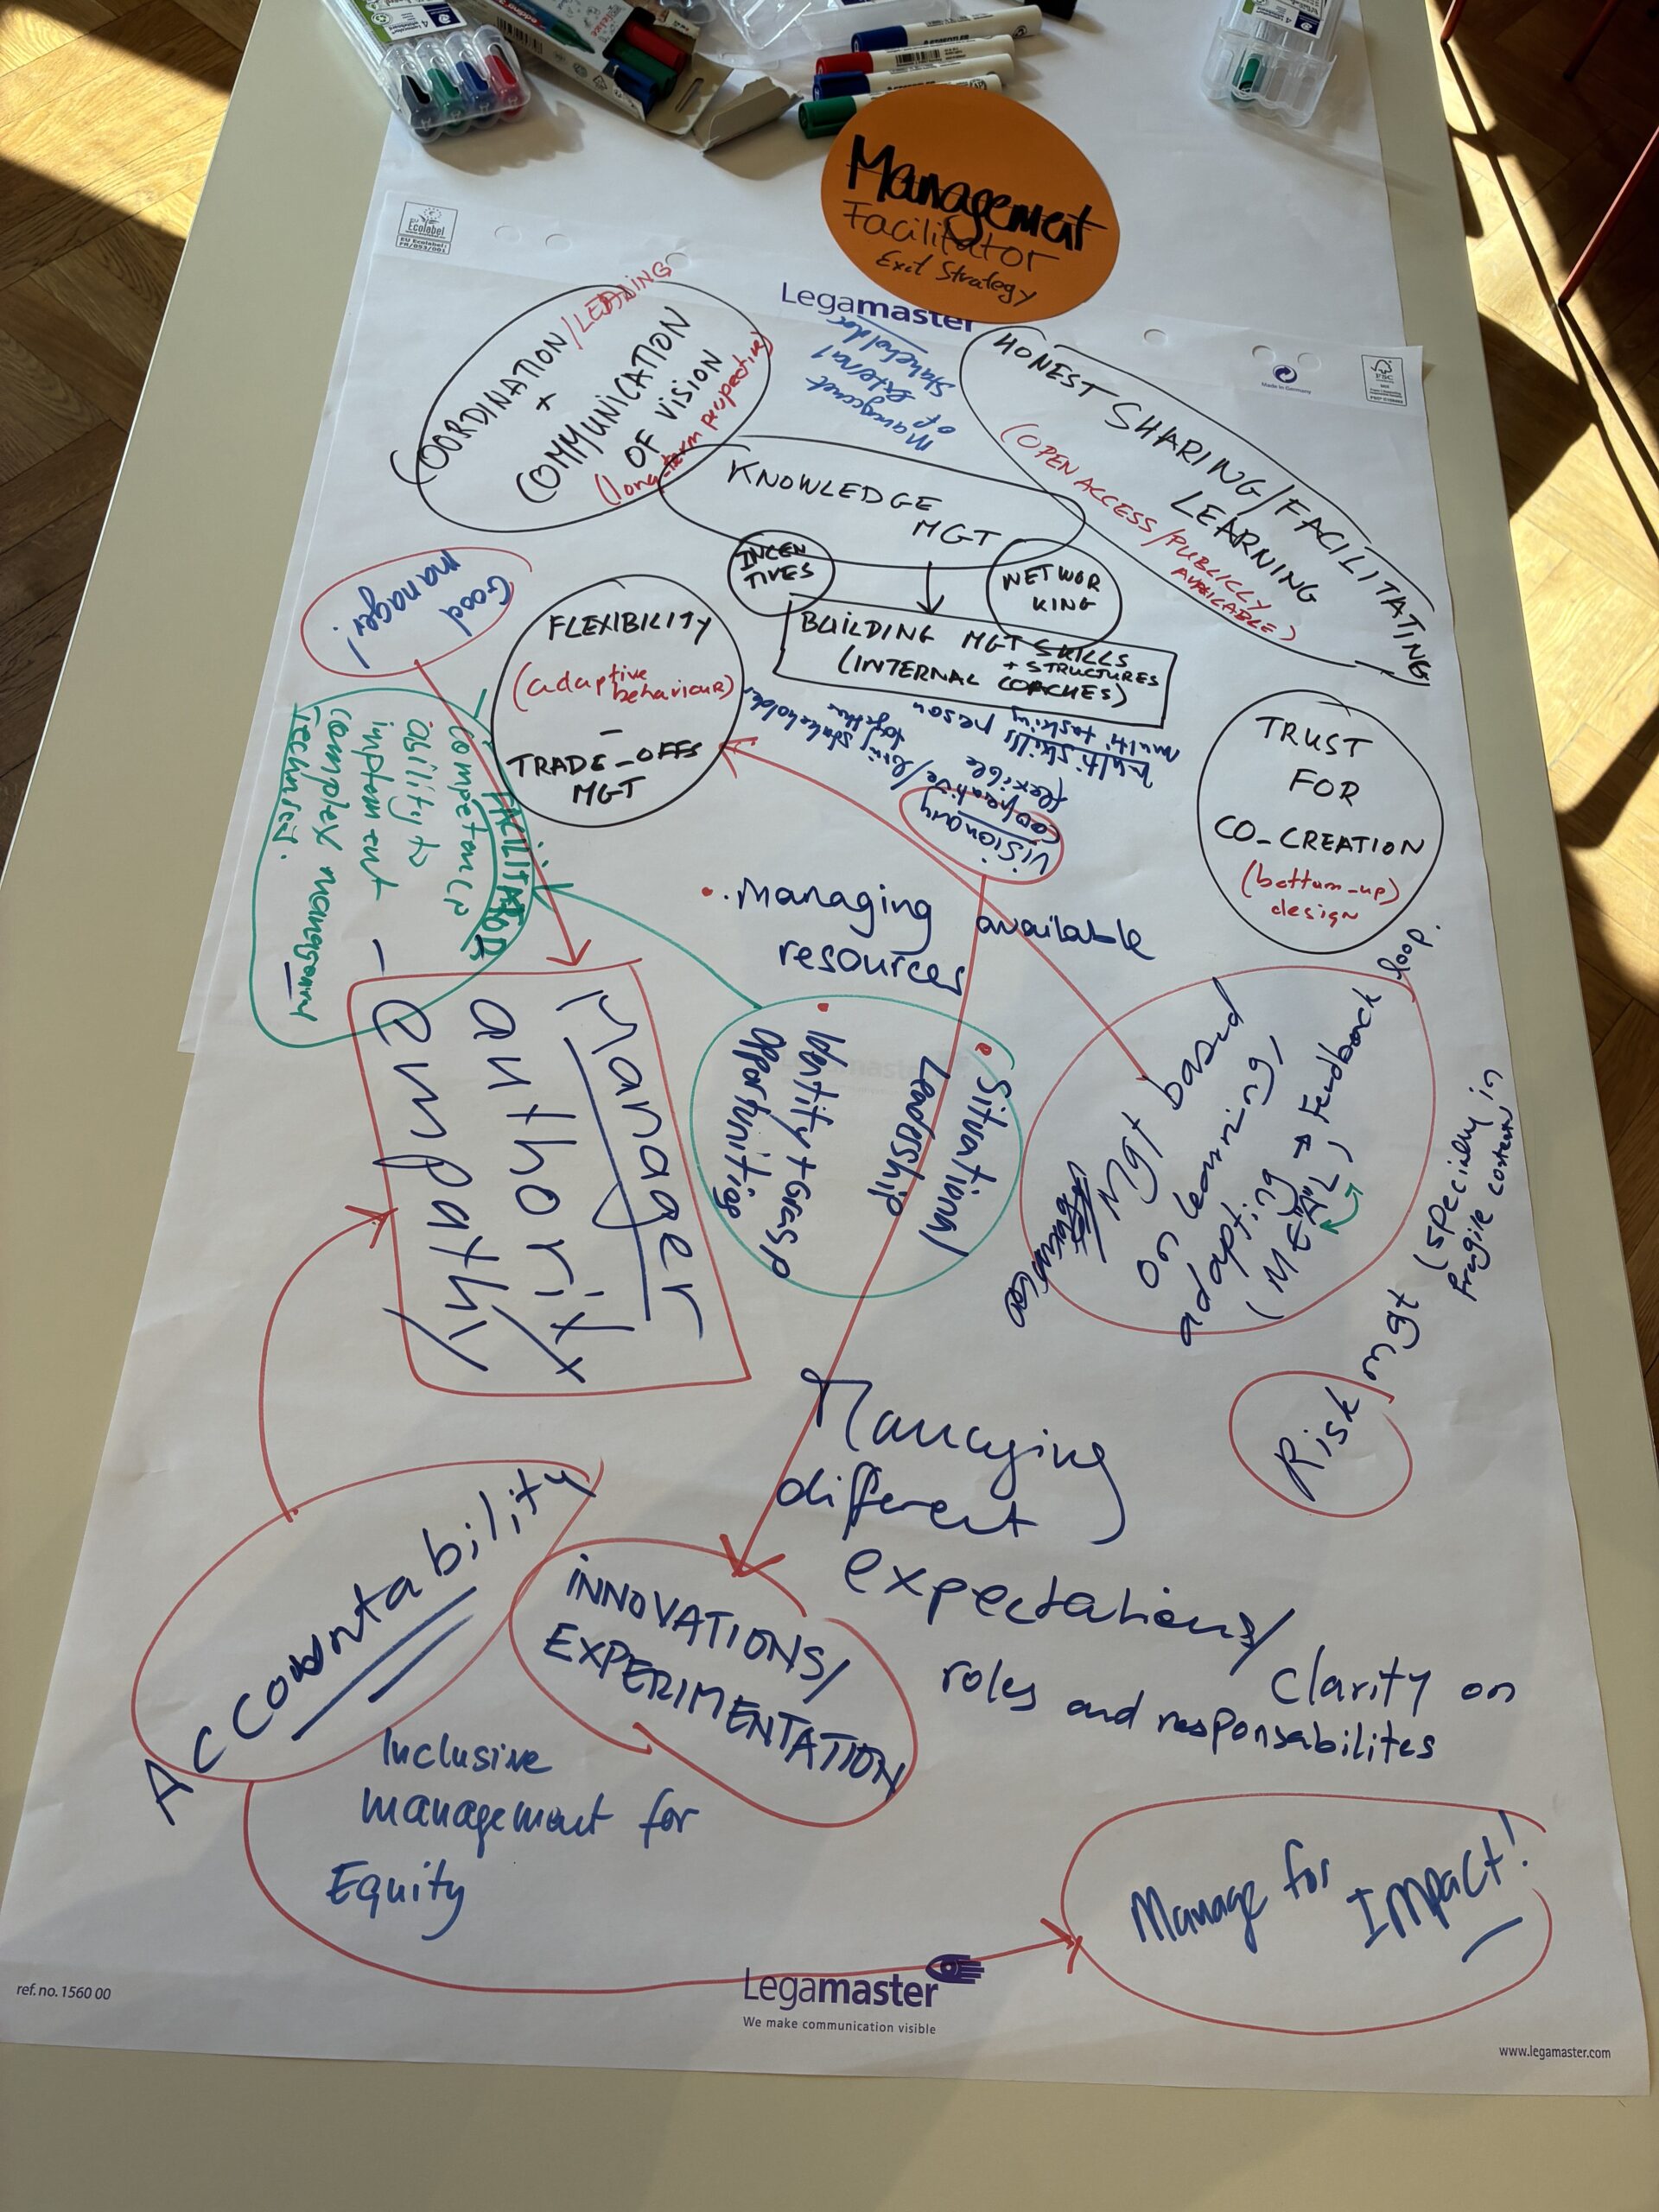 Management
Facilitator
Exit Strategy
EU
Ecolabel
EU Ecolabel:
FR/053/001
Legamaster
Made in Germany
FSC
COORDINATION/LEADING
+
COMMUNICATION
OF VISION
(long-term perspective)
Management
of External
Stakeholder
HONEST SHARING/FACILITATING
LEARNING
(OPEN ACCESS/PUBLICLY
AVAILABLE)
KNOWLEDGE
MGT
INCEN
TIVES
NETWOR
KING
BUILDING MGT SKILLS
+ STRUCTURES
(INTERNAL COACHES)
Good
manager!
FLEXIBILITY
(adaptive
behaviour)
-
TRADE_OFFS
MGT
multi tasking person
Multi skills
flexible
together
Visionary
TRUST
FOR
CO_CREATION
(bottom-up)
design
FACILITATOR
- Competency
ability to
implement
complex management
Techniset.
• Managing available
resources
Manager
authority
- empathy
• Situational
Leadership
• Identity + Grasp
opportunities
Mgt based
on learning,
adapting → Feedback loop.
(MEAL)
Risk mgt (specially in
fragile context
Managing
different
expectations/
clarity on
roles and responsabilites
Accountability
INNOVATIONS/
EXPERIMENTATION
Inclusive
management for
Equity
Manage for
Impact!
ref. no. 1560 00
Legamaster
We make communication visible
www.legamaster.com